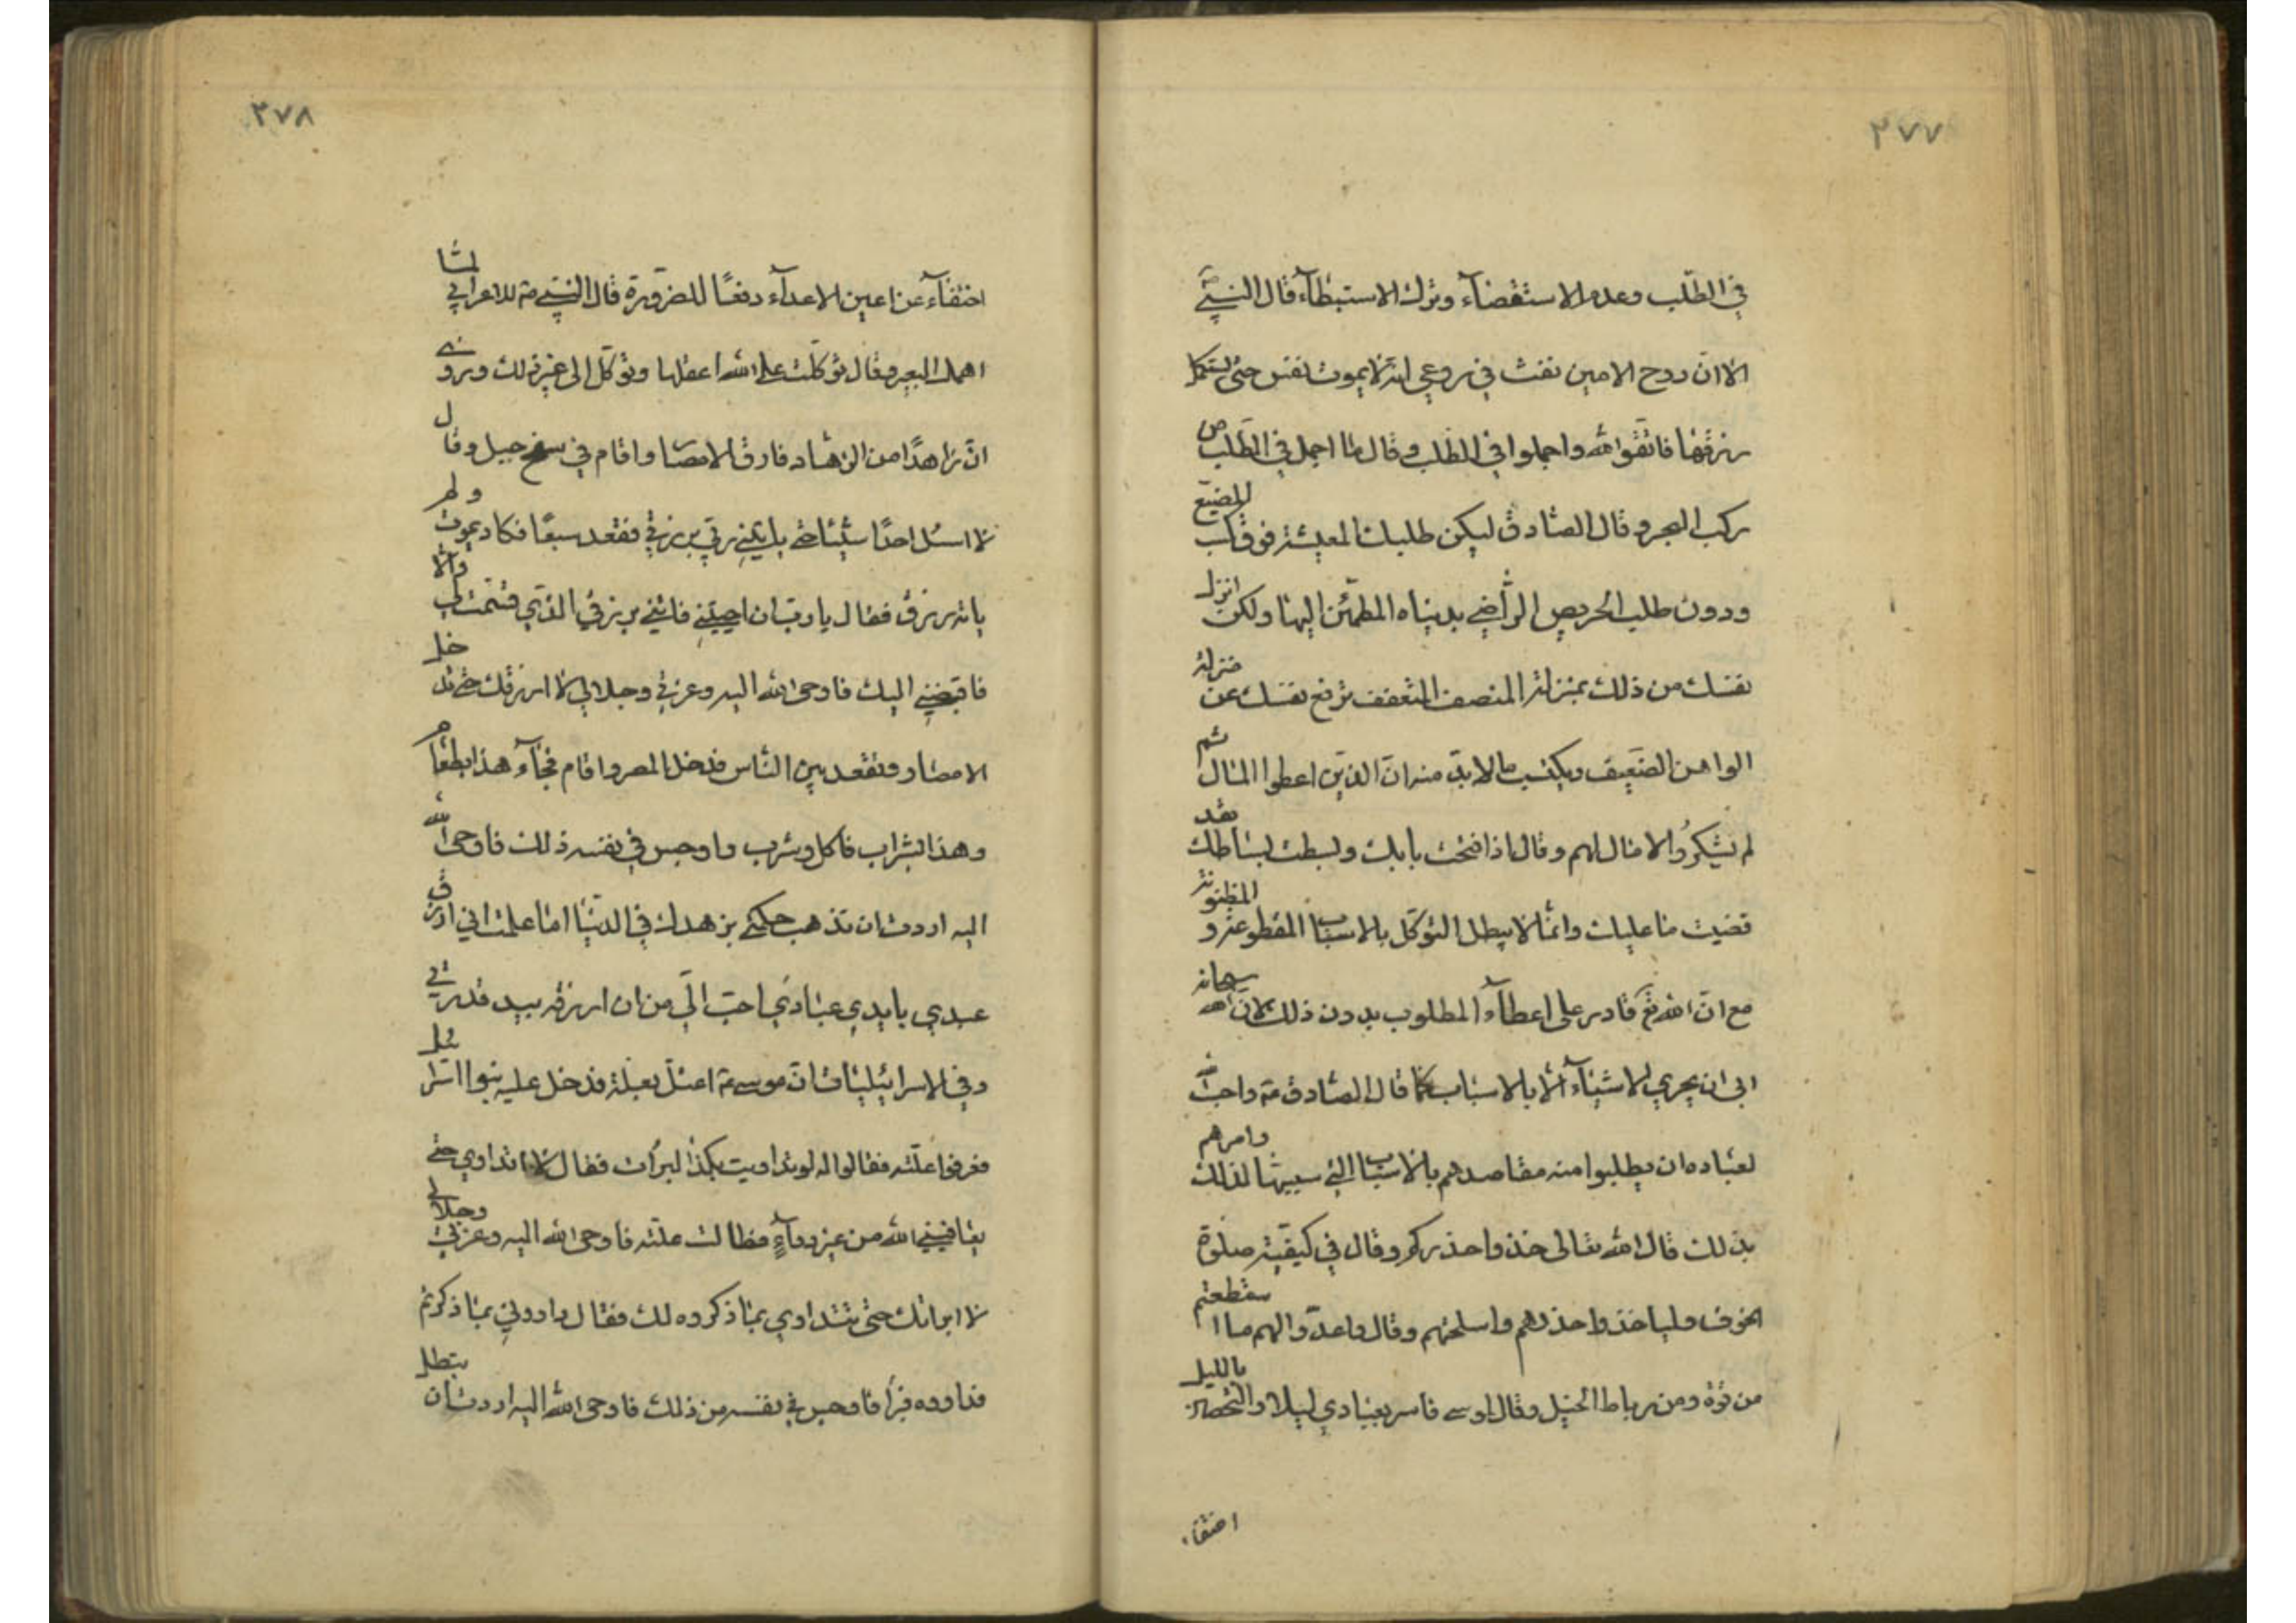 ٣٧٧
في الطلب وعدم الاستقصآء وترك الاستبطآء قال النبي ص
الا ان روح الامين نفث في روعي انه لا يموت نفس حتى تستكمل
رزقها فاتقوا الله واجملوا في الطلب وقال ص ما اجمل في الطلب من
ركب البحر وقال الصادق ليكن طلبك المعيشة فوق كسب المضيع
ودون طلب الحريص الراضي بدنياه المطمئن اليها ولكن انزل
نفسك من ذلك بمنزلة المنصف المتعفف ترفع نفسك عن منزلة
الواهن الضعيف وتكتسب ما لا بد منه ان الذين اعطوا المال ثم
لم يشكروا لا مال لهم وقال اذا فتحت بابك وبسطت بساطك فقد
قضيت ما عليك وانما لا يبطل التوكل بالاسباب المقطوعة و المظنونة
مع ان الله تع قادر على اعطآء المطلوب بدون ذلك لان الله سبحانه
ابى ان يجري الاشيآء الا بالاسباب كما قال الصادق ع واحب الله
لعباده ان يطلبوا منه مقاصدهم بالاسباب التي سببها لذلك وامرهم
بذلك قال الله تعالى خذوا حذركم وقال في كيفية صلوة
الخوف ولياخذوا حذرهم واسلحتهم وقال واعدوا لهم ما استطعتم
من قوة ومن رباط الخيل وقال لموسى فاسر بعبادي ليلا والتحصن بالليل
اختفاء
٣٧٨
اختفآء عن اعين الاعدآء دفعًا للضرورة قال النبي ص للاعرابي لما
اهمل البعير وقال توكلت على الله اعقلها وتوكل الى غير ذلك وروي
ان زاهدًا من الزهاد فارق الامصار واقام في سفح جبل وقال
لا اسئل احدًا شيئا حتى ياتيني ربي برزقي فقعد سبعًا فكاد يموت ولم
ياته رزق فقال يا رب ان احييتني فاتني برزقي الذي قسمت لي والا
فاقبضني اليك فاوحى الله اليه وعزتي وجلالي لا ارزقك حتى تدخل
الامصار وتقعد بين الناس فدخل المصر واقام فجآء هذا بطعام
وهذا بشراب فاكل وشرب واوجس في نفسه ذلك فاوحى الله
اليه اردت ان تذهب حكمتي بزهدك في الدنيا اما علمت اني ارزق
عبدي بايدي عبادي احب الي من ان ارزقه بيد قدرتي
وفي الاسرائيليات ان موسى ع اعتل بعلة فدخل عليه بنوا اسرائيل
فعرفوا علته فقالوا له لو تداويت بكذا لبرات فقال لا اتداوي حتى
يعافيني الله من غير دوآء فطالت علته فاوحى الله اليه وعزتي وجلالي
لا ابراتك حتى تتداوي بما ذكروه لك فقال داووني بما ذكرتم
فداووه فبرأ فاوجس في نفسه من ذلك فاوحى الله اليه اردت ان تبطل